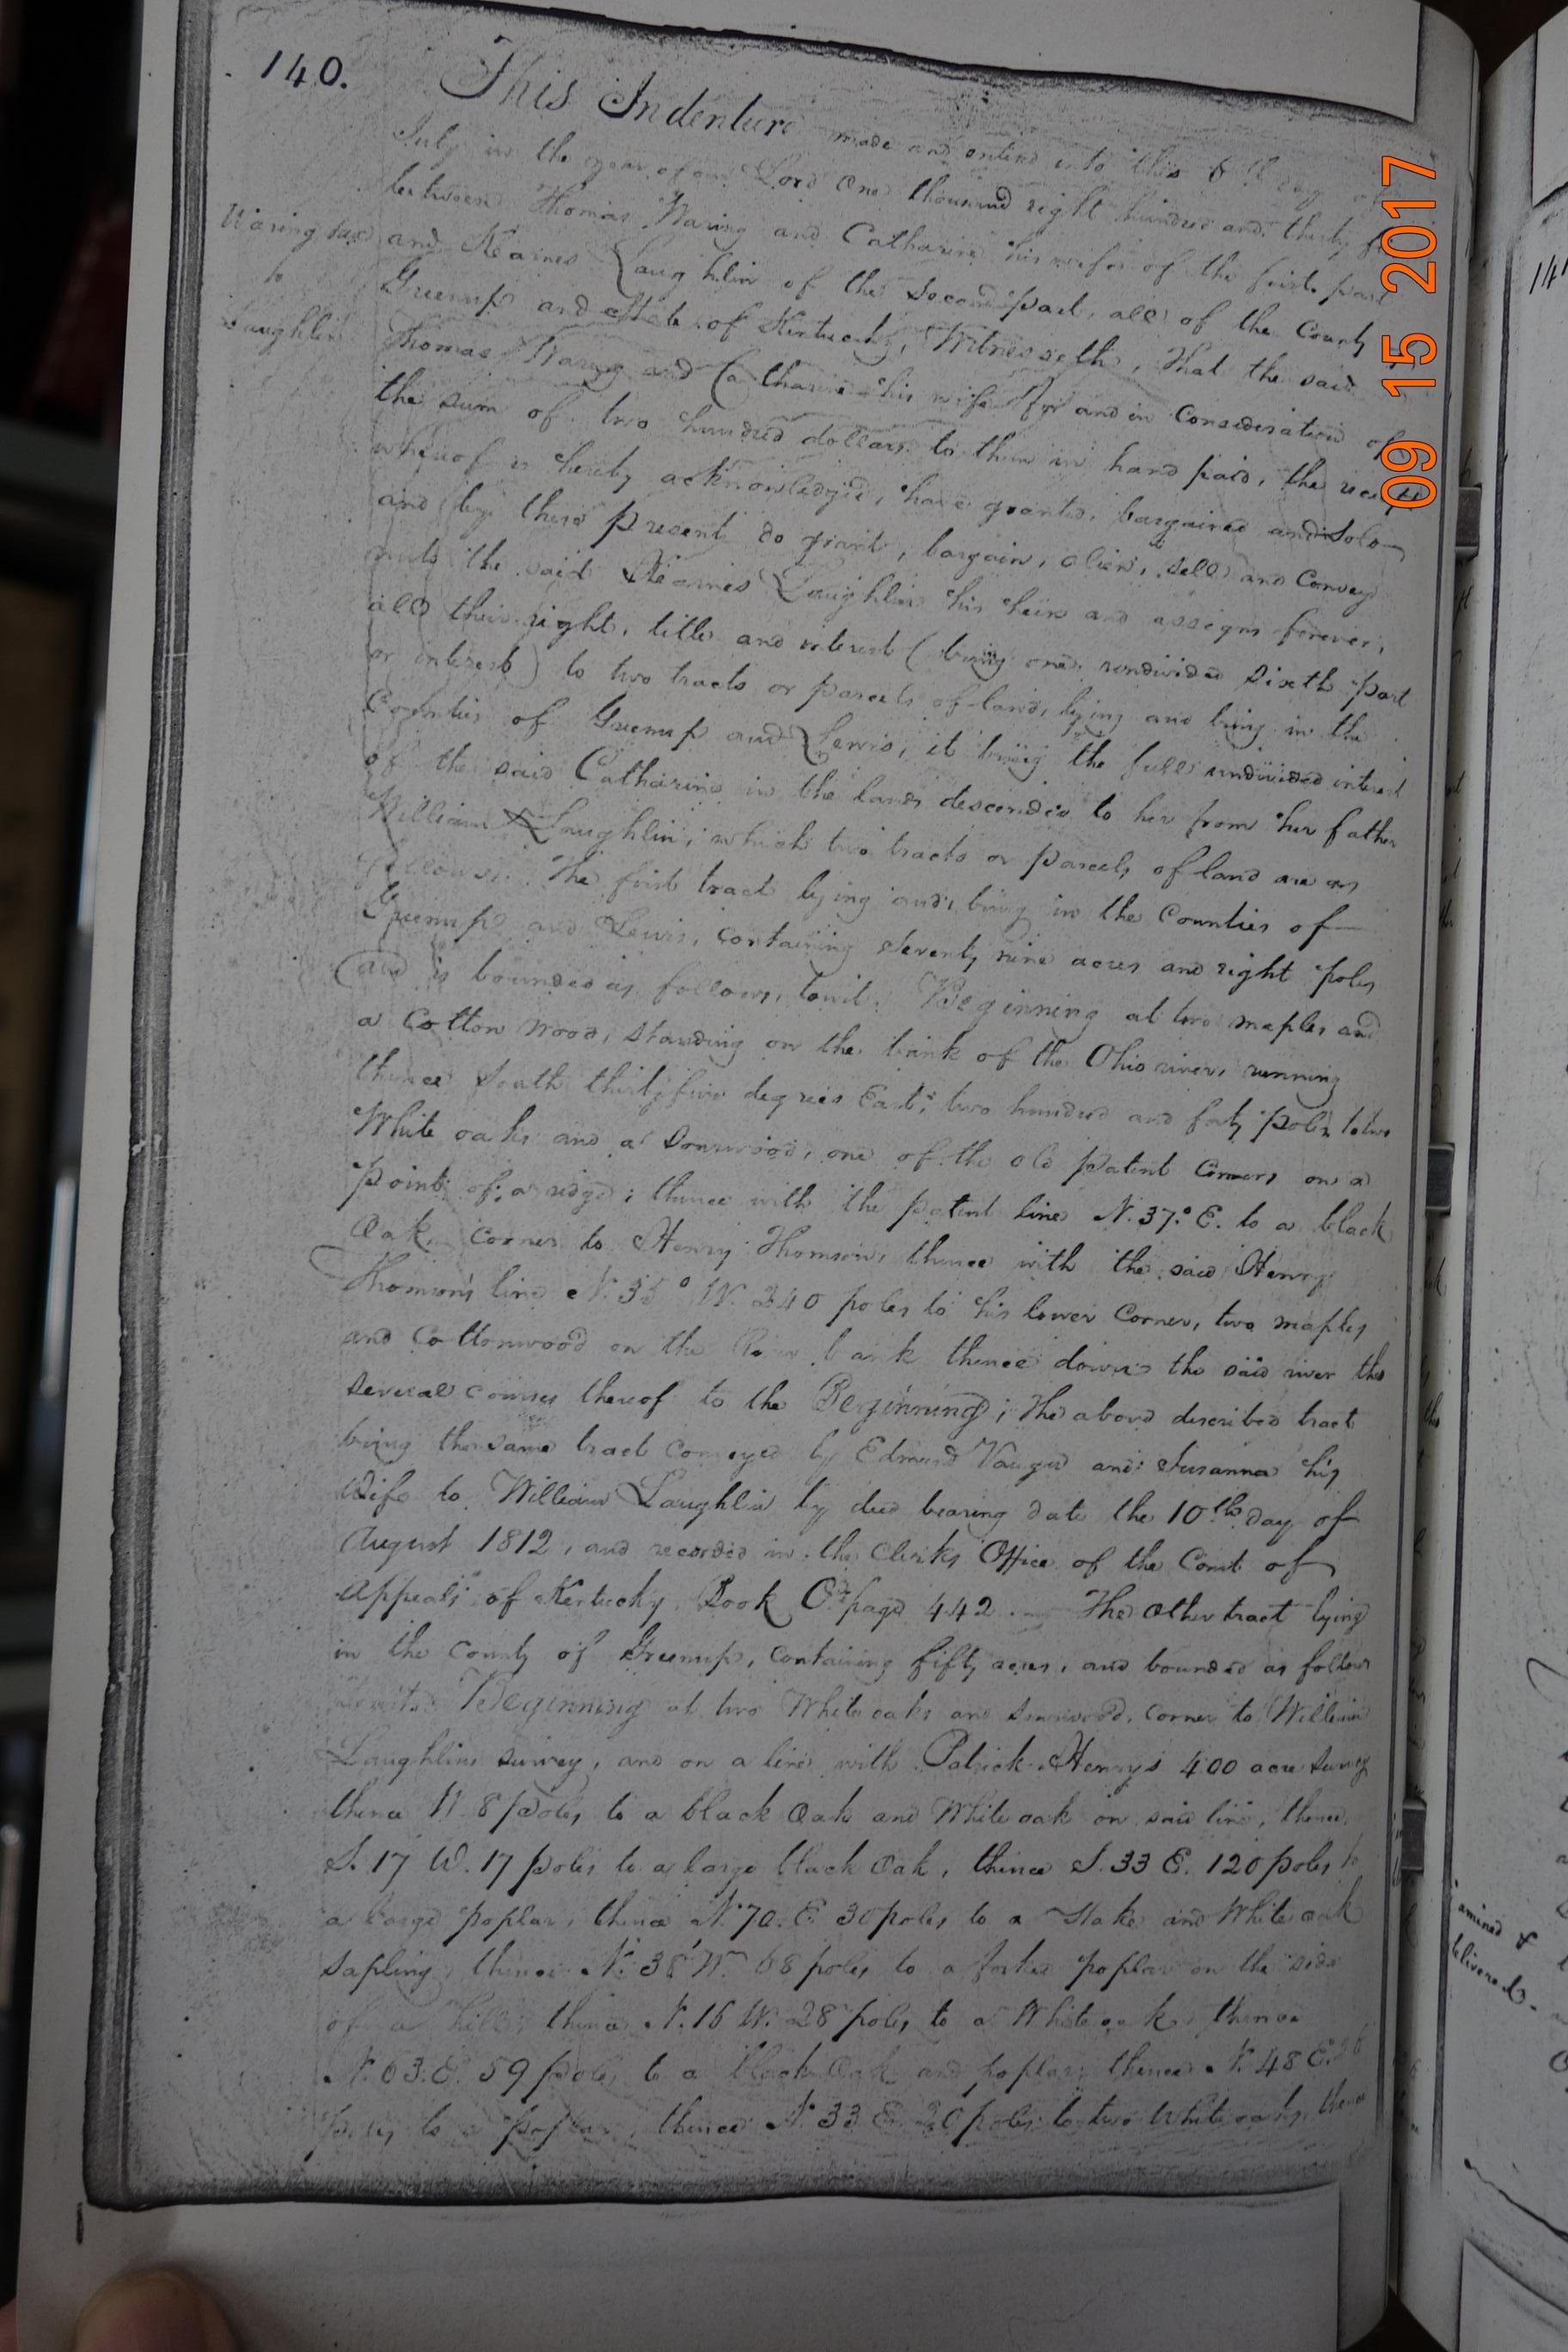 140.
This Indenture made and entered into this 6th day of
July in the year of our Lord One thousand eight hundred and thirty
between Thomas Waring and Catharine his wife of the first part
Waring &ux
to
Laughlin
and Kearnes Laughlin of the second part, all of the County
Greenup and State of Kentucky, Witnesseth, That the said
Thomas Waring and Catharine his wife for and in Consideration of
the sum of two hundred dollars to them in hand paid, the receipt
whereof is hereby acknowledged, have granted, bargained and Sold
and by these present do grant, bargain, alien, sell and Convey
unto the said Kearnes Laughlin his heirs and assigns forever,
all their right, title and interest (being one undivided sixth part
or interest) to two tracts or parcels of land, lying and being in the
Counties of Greenup and Lewis, it being the full undivided interest
of the said Catharine in the lands descended to her from her father
William Laughlin, which two tracts or parcels of land are as
follows. The first tract lying and being in the Counties of
Greenup and Lewis, containing seventy nine acres and eight poles
and is bounded as follows, towit. Beginning at two maples and
a Cotton wood, standing on the bank of the Ohio river, running
thence South thirty five degrees East, two hundred and forty poles to two
White oaks and a sourwood, one of the old patent Corners on a
point of a ridge; thence with the patent line N. 37.° E. to a black
Oak, corner to Henry Thomson, thence with the said Henry
Thomson's line N. 35° W. 240 poles to his lower Corner, two maples
and Cottonwood on the River bank thence down the said river the
several courses thereof to the Beginning; The above described tract
being the same tract conveyed by Edmund Vaugn and Susanna his
Wife to William Laughlin by deed bearing date the 10th day of
August 1812, and recorded in the Clerks Office of the Court of
Appeals of Kentucky Book O. page 442. The other tract lying
in the County of Greenup, containing fifty acres, and bounded as follows
towit. Beginning at two White oaks and sourwood, corner to William
Laughlins survey, and on a line with Patrick Henry's 400 acre survey
thence W. 8 poles, to a black Oak and White oak on said line, thence
S. 17 W. 17 poles to a large black Oak, thence S. 33 E. 120 poles to
a large poplar, thence N. 70. E 30 poles to a Stake and White oak
sapling, thence N. 38 W. 68 poles to a forked poplar on the side
of a hill, thence N. 16 W. 28 poles to a White oak thence
N. 63. E. 59 poles to a black Oak and poplar, thence N. 48 E.
poles to a poplar, thence N. 33 E. 20 poles to two White oaks, thence
09 15 2017
amined &